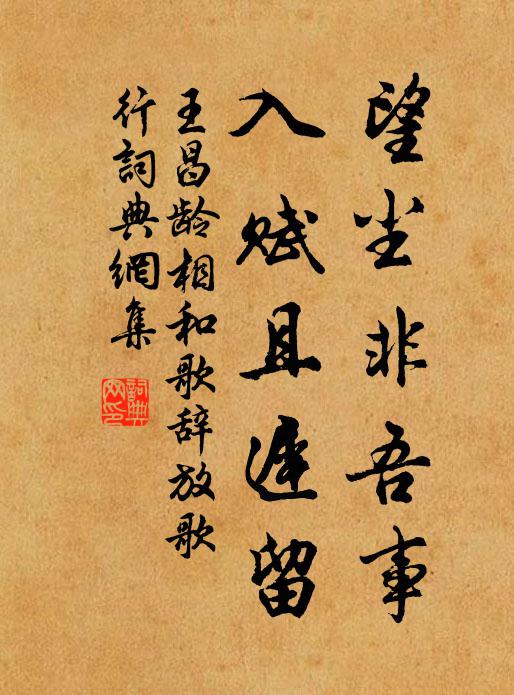 望尘非吾事
入赋且迟留
王昌龄相和歌辞放歌
行詞典網集
詞典
网印